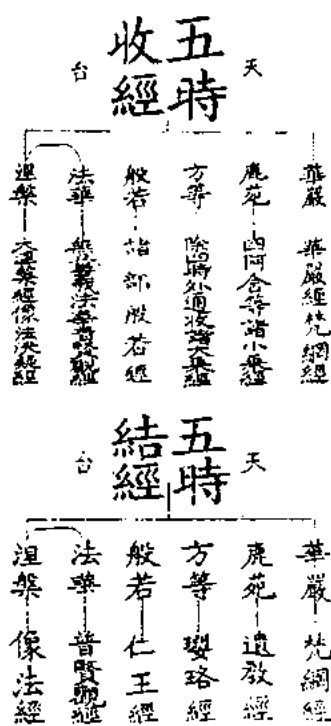 天
五時
收經
台
華嚴 華嚴經梵網經
鹿苑 四阿含等諸小乘經
方等 除四時外通收諸大乘經
般若 諸部般若經
法華 無量義法華普賢觀經
涅槃 大涅槃經像法決疑經
天
五時
結經
台
華嚴 梵網經
鹿苑 遺教經
方等 瓔珞經
般若 仁王經
法華 普賢觀經
涅槃 像法經